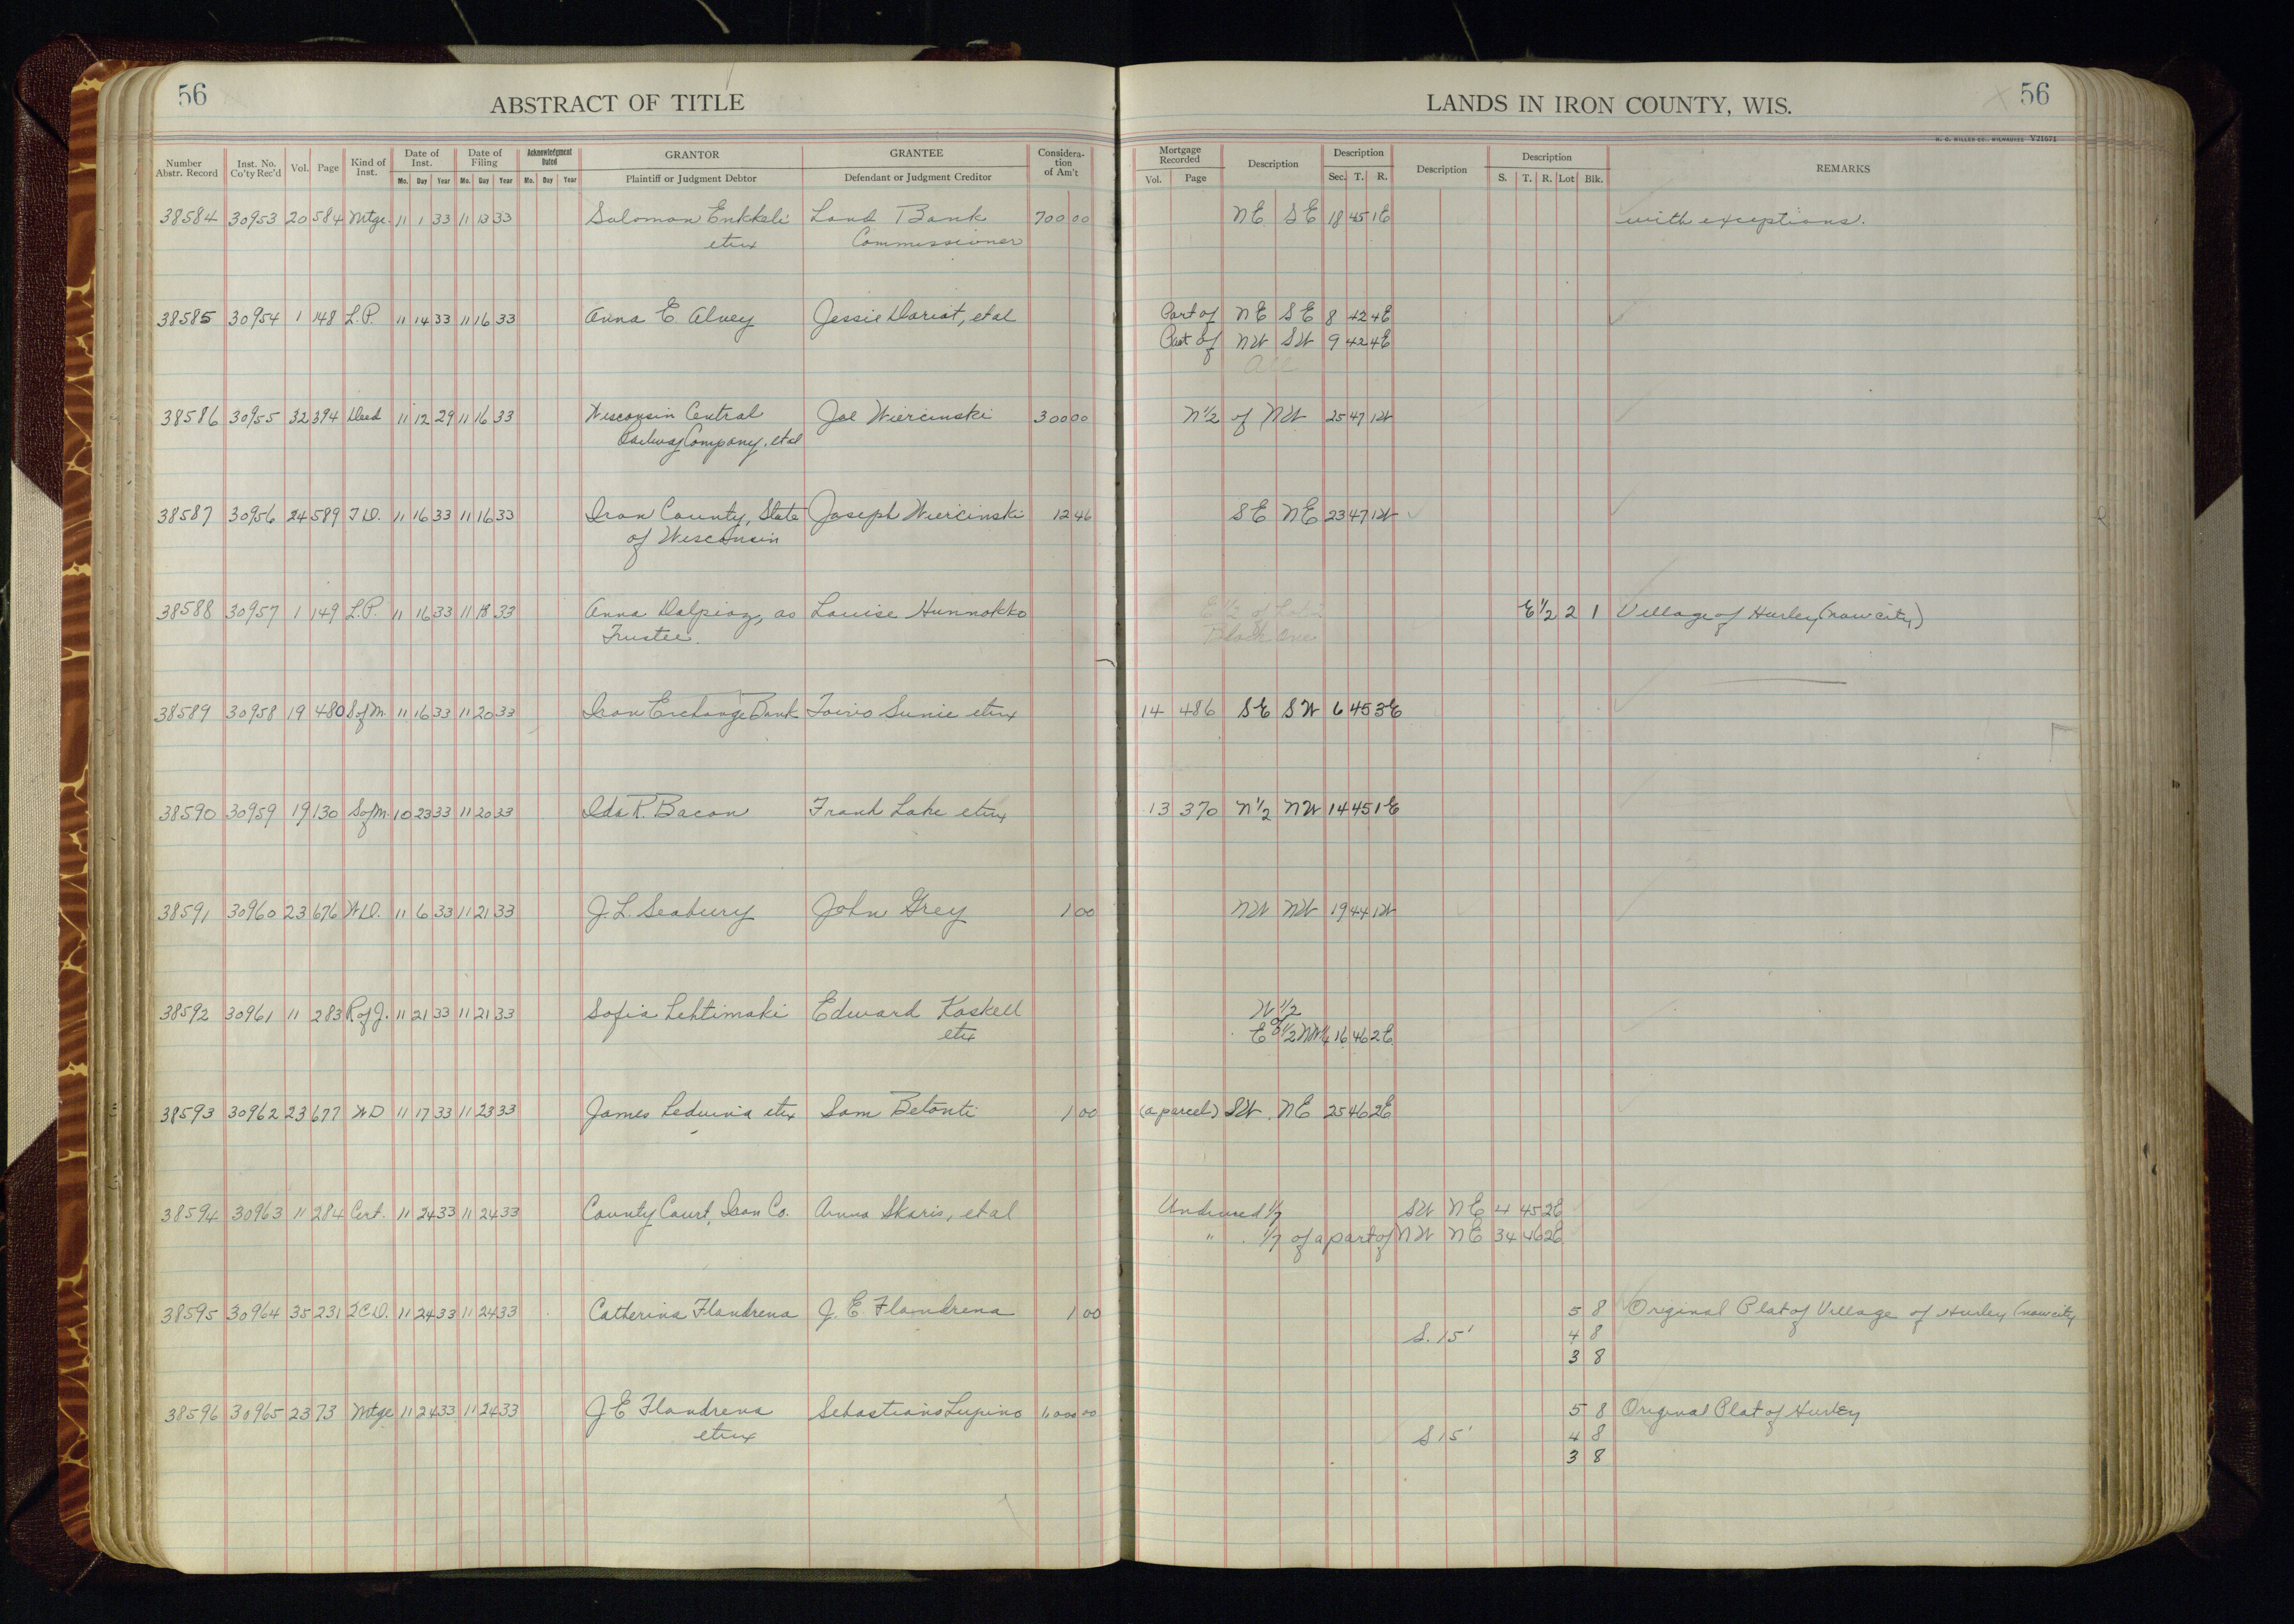 56
ABSTRACT OF TITLE
LANDS IN IRON COUNTY, WIS.
56
H. C. MILLER CO., MILWAUKEE V21671
Number Abstr. Record Inst. No. Co'ty Rec'd Vol. Page Kind of Inst. Date of Inst. Date of Filing Acknowledgment Dated GRANTOR GRANTEE Considera-tion of Am't Mortgage Recorded Description Description Description Description REMARKS
Mo. Day Year Mo. Day Year Mo. Day Year Plaintiff or Judgment Debtor Defendant or Judgment Creditor Vol. Page Sec. T. R. S. T. R. Lot Blk.
38584 30953 20 584 Mtge. 11 1 33 11 13 33 Solomon Enkkeli Land Bank 700 00 NE SE 18 45 1E with exceptions.
etux Commissioner
38585 30954 1 148 L.P. 11 14 33 11 16 33 Anna E. Alvey Jessie Dariot, et al Part of NE SE 8 42 4E
Part of NW SW 9 42 4E
All
38586 30955 32 394 Deed 11 12 29 11 16 33 Wisconsin Central Joe Wiercinski 300 00 N1/2 of NW 25 47 1W
Railway Company, et al
38587 30956 24 589 T.D. 11 16 33 11 16 33 Iron County, State Joseph Wiercinski 12 46 SE NE 23 47 1W
of Wisconsin
38588 30957 1 149 L.P. 11 16 33 11 18 33 Anna Dalpiaz, as Louise Hunnakko E 1/2 of Lot 2 E 1/2 2 1 Village of Hurley (now city)
Trustee. Block One
38589 30958 19 480 S of M. 11 16 33 11 20 33 Iron Exchange Bank Toivo Sunie etux 14 486 SE SW 6 45 3E
38590 30959 19 130 S of M. 10 23 33 11 20 33 Ida R. Bacon Frank Lake etux 13 370 N 1/2 NW 14 45 1E
38591 30960 23 676 W.D. 11 6 33 11 21 33 J. L. Seabury John Grey 1 00 NW NW 19 44 1W
38592 30961 11 283 R of J. 11 21 33 11 21 33 Sofia Lehtimaki Edward Koskell W 1/2
etux of
E 1/2 NW 1/4 16 46 2E
38593 30962 23 677 W D 11 17 33 11 23 33 James Leduina etux Sam Betonti 1 00 (a parcel) SW NE 25 46 2E
38594 30963 11 284 Cert. 11 24 33 11 24 33 County Court, Iron Co. Anna Skaris, et al Undivided 1/7 SW NE 4 45 2E
" 1/7 of a part of NW NE 34 46 2E
38595 30964 35 231 2C.D. 11 24 33 11 24 33 Catherina Flandrena J. E. Flandrena 1 00 5 8 Original Plat of Village of Hurley (now city
S. 15' 4 8
3 8
38596 30965 23 73 Mtge 11 24 33 11 24 33 J E Flandrena Sebastiano Lupino 1,000 00 5 8 Original Plat of Hurley
etux S 15' 4 8
3 8